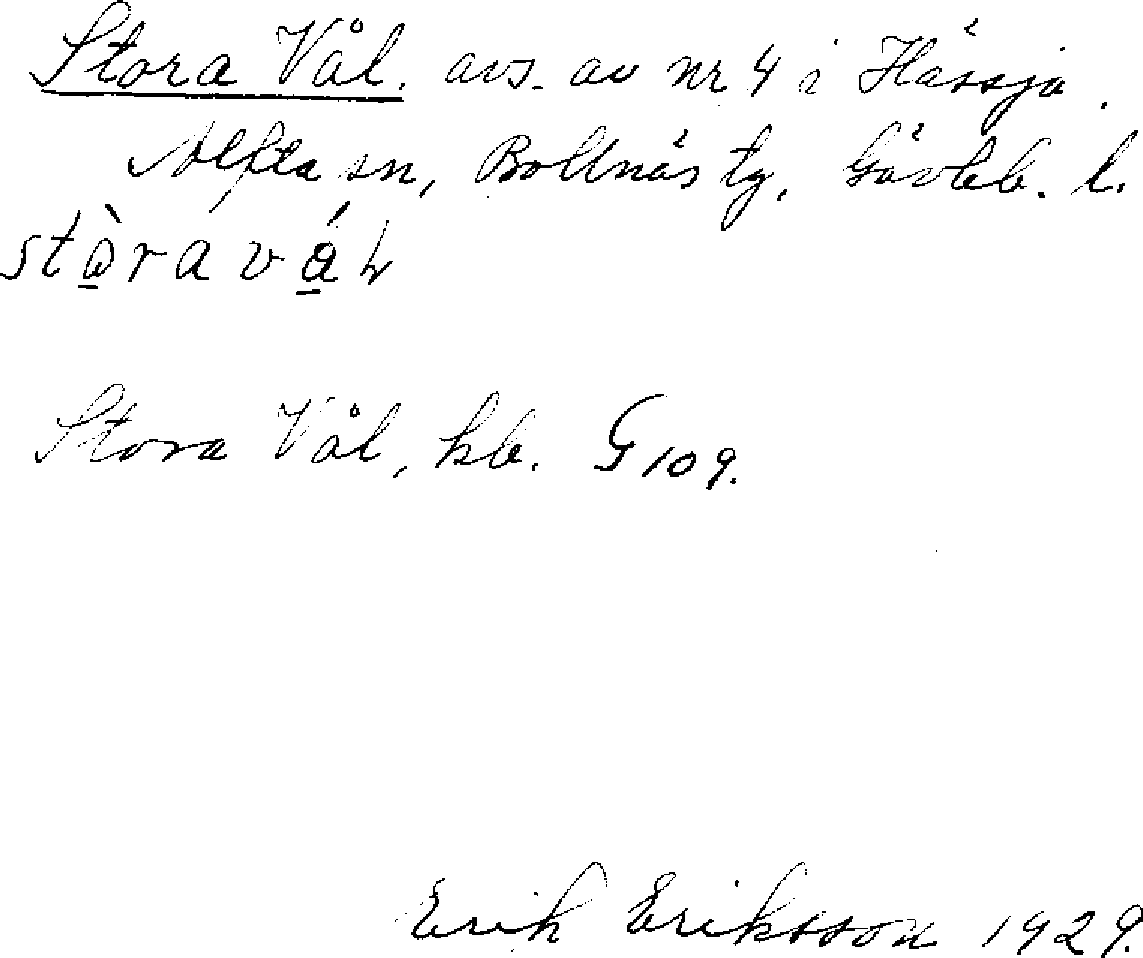 Stora Vål. avs. av nr 4 i Hässja.
Alfta sn, Bollnäs tg, Gävleb. l.
Stora Vål, kb. G 109.
Erik Eriksson 1929.